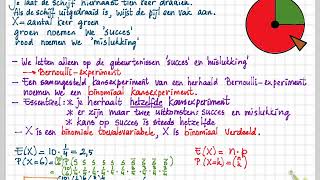 Je laat de schijf hiernaast tien keer draaien.
Als de schijf uitgedraaid is, wijst de pijl een vak aan.
X = aantal keer groen
groen noemen we 'succes'
rood noemen we 'mislukking'
- We letten alleen op de gebeurtenissen 'succes' en mislukking'
→ Bernoulli-experiment
- Een samengesteld kansexperiment van een herhaald Bernoulli-experiment
noemen we een binomiaal kansexperiment.
- Essentieel: * je herhaalt hetzelfde kansexperiment
* er zijn maar twee uitkomsten: succes en mislukking
* kans op succes is steeds hetzelfde
- X is een binomiale toevalsvariabele, X is binomiaal verdeeld.
E(X) = 10 · 1/4 = 2,5
E(X) = n · p
P(X=6) =
P(X=k) =